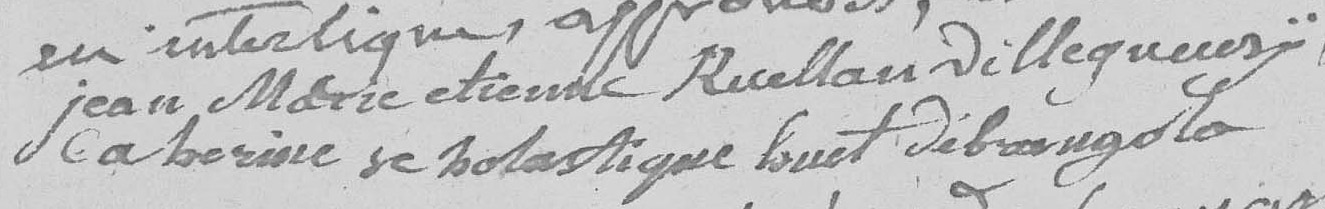 en interligne, approuvés,
jean Marie etienne Ruellan
Catherine scholastique huet débrangolo